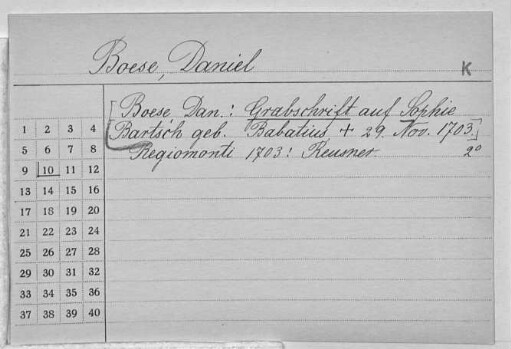 Boese, Daniel
K
[Boese Dan.: Grabschrift auf Sophie
Bartsch geb. Babatius + 29. Nov. 1703.]
Regiomonti 1703: Reusner. 2°
1 2 3 4
5 6 7 8
9 10 11 12
13 14 15 16
17 18 19 20
21 22 23 24
25 26 27 28
29 30 31 32
33 34 35 36
37 38 39 40